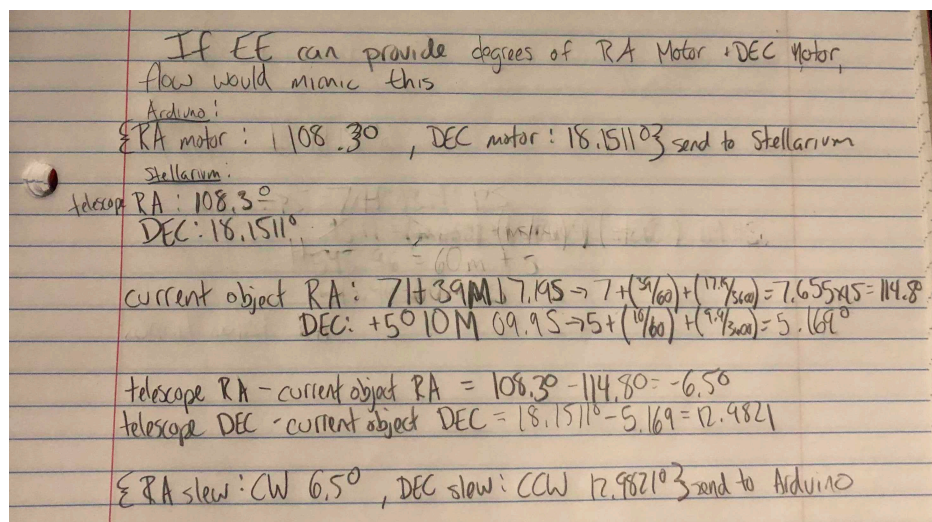 If EE can provide degrees of RA Motor + DEC Motor,
flow would mimic this
Arduino:
{RA motor: 108.3°, DEC motor: 18.1511°} send to Stellarium
Stellarium:
telescope RA: 108.3°
DEC: 18.1511°
current object RA: 7H 39M 17.19S → 7+(39/60)+(17.19/3600)=7.655x15=114.8°
DEC: +5° 10M 09.9S → 5+(10/60)+(9.9/3600)=5.169°
telescope RA - current object RA = 108.3° - 114.8° = -6.5°
telescope DEC - current object DEC = 18.1511° - 5.169 = 12.9821
{RA slew: CW 6.5°, DEC slew: CCW 12.9821°} send to Arduino